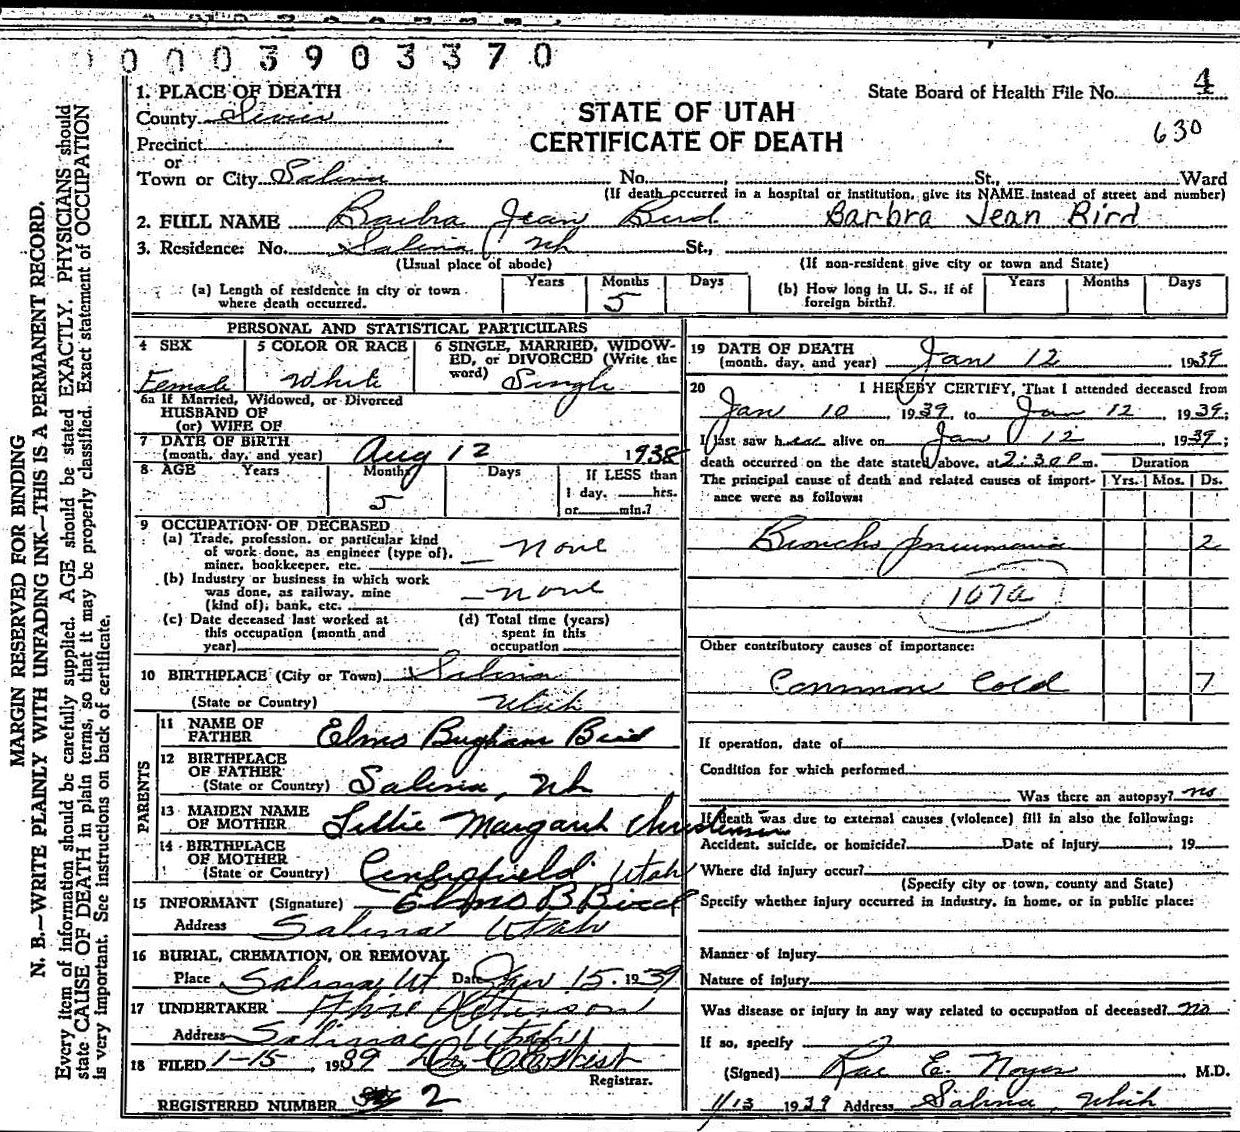 0003903370
1. PLACE OF DEATH
State Board of Health File No. 4
County Sevier
STATE OF UTAH
630
Precinct
CERTIFICATE OF DEATH
or
Town or City Salina No. St., Ward
(If death occurred in a hospital or institution, give its NAME instead of street and number)
2. FULL NAME Barbra Jean Bird Barbra Jean Bird
3. Residence: No. Salina Uh St.,
(Usual place of abode) (If non-resident give city or town and State)
(a) Length of residence in city or town where death occurred. Years Months 5 Days
(b) How long in U. S., if of foreign birth? Years Months Days
PERSONAL AND STATISTICAL PARTICULARS
4 SEX Female
5 COLOR OR RACE White
6 SINGLE, MARRIED, WIDOWED, or DIVORCED (Write the word) Single
6a If Married, Widowed, or Divorced
HUSBAND OF
(or) WIFE OF
7 DATE OF BIRTH
(month, day, and year) Aug 12 1938
8 AGE Years Months 5 Days If LESS than
1 day, hrs.
or min.?
9 OCCUPATION OF DECEASED
(a) Trade, profession, or particular kind
of work done, as engineer (type of),
miner, bookkeeper, etc. none
(b) Industry or business in which work
was done, as railway, mine
(kind of); bank, etc. none
(c) Date deceased last worked at
this occupation (month and
year)
(d) Total time (years)
spent in this
occupation
10 BIRTHPLACE (City or Town) Salina
(State or Country) Utah
PARENTS
11 NAME OF
FATHER Elmo Brigham Bird
12 BIRTHPLACE
OF FATHER
(State or Country) Salina, Uh
13 MAIDEN NAME
OF MOTHER Lillie Margaret Christensen
14 BIRTHPLACE
OF MOTHER
(State or Country) Centerfield Utah
15 INFORMANT (Signature) Elmo B Bird
Address Salina Utah
16 BURIAL, CREMATION, OR REMOVAL
Place Salina, Ut Date Jan 15. 1939
17 UNDERTAKER
Address Salina Utah
18 FILED 1-15, 1939
Registrar.
REGISTERED NUMBER 2
19 DATE OF DEATH
(month, day, and year) Jan 12 1939
20 I HEREBY CERTIFY, That I attended deceased from
Jan 10, 1939, to Jan 12, 1939;
I last saw her alive on Jan 12, 1939;
death occurred on the date stated above, at 2:30 P m.
Duration
The principal cause of death and related causes of importance were as follows:
Yrs. Mos. Ds.
Broncho pneumonia 2
107a
Other contributory causes of importance:
Common Cold 7
If operation, date of
Condition for which performed
Was there an autopsy? no
If death was due to external causes (violence) fill in also the following:
Accident, suicide, or homicide? Date of Injury , 19
Where did injury occur?
(Specify city or town, county and State)
Specify whether injury occurred in industry, in home, or in public place:
Manner of injury
Nature of injury
Was disease or injury in any way related to occupation of deceased? no
If so, specify
(Signed) Rae E. Noyes, M.D.
1/13 1939 Address Salina, Utah
MARGIN RESERVED FOR BINDING
N. B.—WRITE PLAINLY WITH UNFADING INK—THIS IS A PERMANENT RECORD.
Every item of information should be carefully supplied. AGE should be stated EXACTLY. PHYSICIANS should
state CAUSE OF DEATH in plain terms, so that it may be properly classified. Exact statement of OCCUPATION
is very important. See instructions on back of certificate.